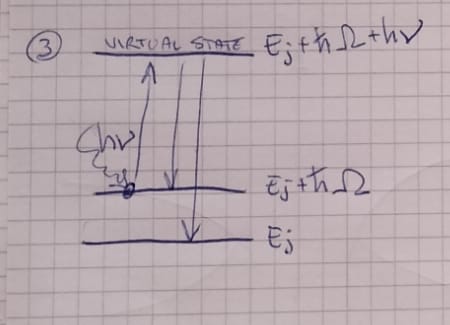 ③ VIRTUAL STATE Ej+ħΩ+hν
hν
Ej+ħΩ
Ej